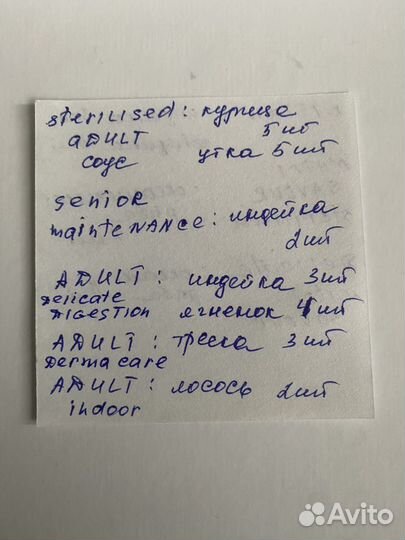 sterilised: курица
5 шт
ADULT
соус утка 5 шт
senior
maintenance: индейка
2 шт
ADULT: индейка 3 шт
Delicate
Digestion ягненок 4 шт
ADULT: треска 3 шт
Derma care
ADULT: лосось 2 шт
indoor
Avito